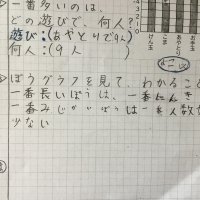 一番多いのは、
どの遊びで、何人?
遊び:(あやとりで9人)
何人:(9人)
けん玉
あやとり
おはじき
ぼうグラフを見て、わかること
一番長いぼうは、一番にんき
一番みじかいぼうは一番人数が
少ない